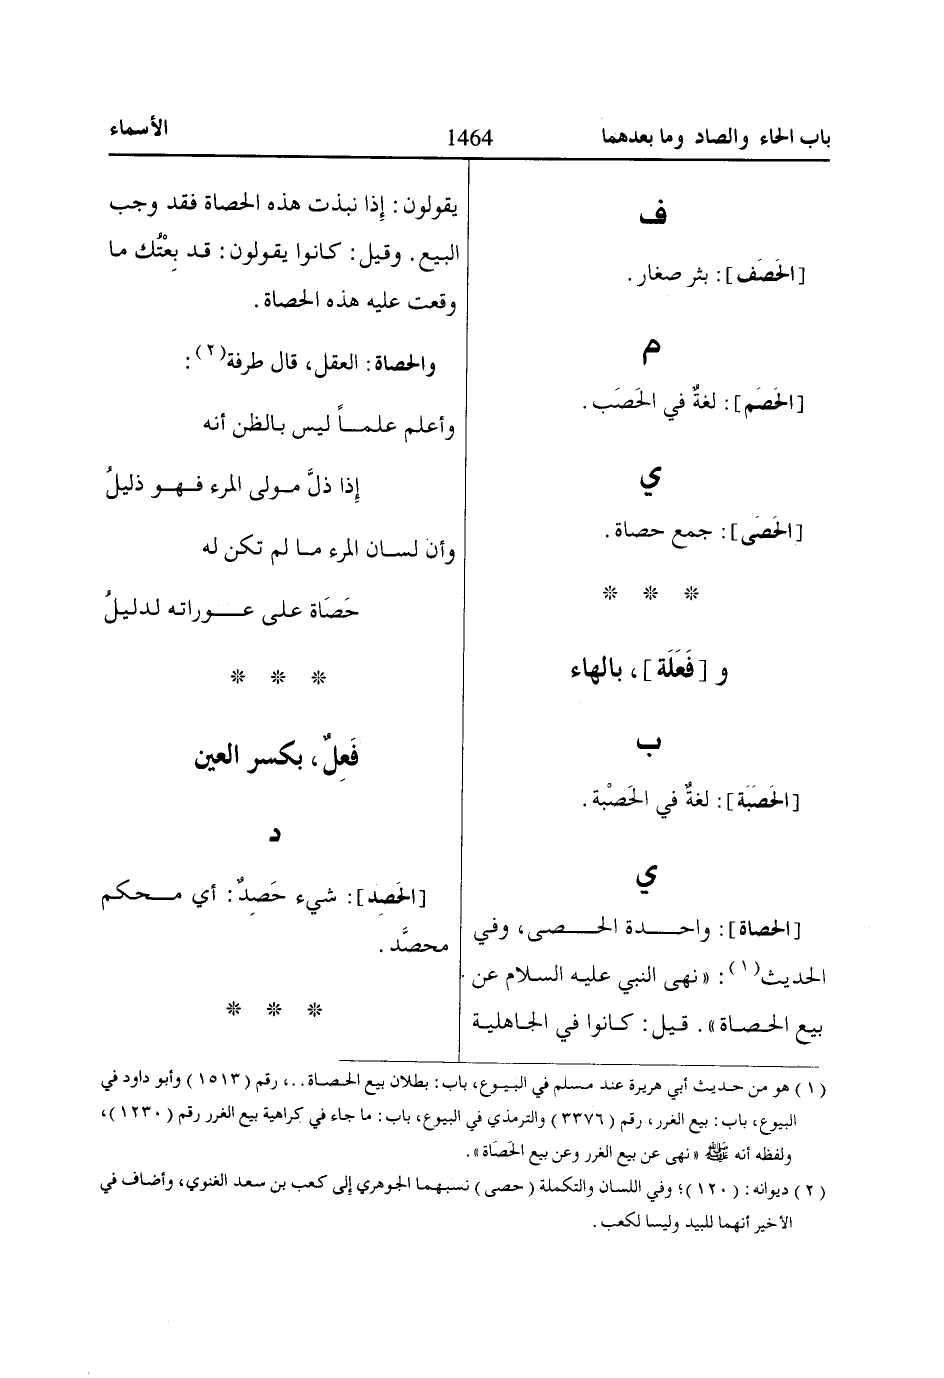 باب الحاء والصاد وما بعدهما
1464
الأسماء
ف
[الحَصَف]: بثر صغار.
م
[الحَصَم]: لغةٌ في الحَصَب.
ي
[الحَصَى]: جمع حصاة.
* * *
و [فَعَلَة]، بالهاء
ب
[الحَصَبَة]: لغةٌ في الحَصْبة.
ي
[الحصاة]: واحدة الحصى، وفي
الحديث(١): «نهى النبي عليه السلام عن
بيع الحصاة». قيل: كانوا في الجاهلية
يقولون: إذا نبذت هذه الحصاة فقد وجب
البيع. وقيل: كانوا يقولون: قد بِعْتُك ما
وقعت عليه هذه الحصاة.
والحصاة: العقل، قال طرفة(٢):
وأعلم علماً ليس بالظن أنه
إذا ذلَّ مولى المرء فهو ذليلُ
وأن لسان المرء ما لم تكن له
حَصَاة على عوراته لدليلُ
* * *
فَعِلٌ، بكسر العين
د
[الحَصِد]: شيء حَصِدٌ: أي محكم
محصَّد.
* * *
(١) هو من حديث أبي هريرة عند مسلم في البيوع، باب: بطلان بيع الحصاة..، رقم (١٥١٣) وأبو داود في
البيوع، باب: بيع الغرر، رقم (٣٣٧٦) والترمذي في البيوع، باب: ما جاء في كراهية بيع الغرر رقم (١٢٣٠)،
ولفظه أنه ﷺ «نهى عن بيع الغرر وعن بيع الحَصَاة».
(٢) ديوانه: (١٢٠)؛ وفي اللسان والتكملة (حصى) نسبهما الجوهري إلى كعب بن سعد الغنوي، وأضاف في
الأخير أنهما للبيد وليسا لكعب.